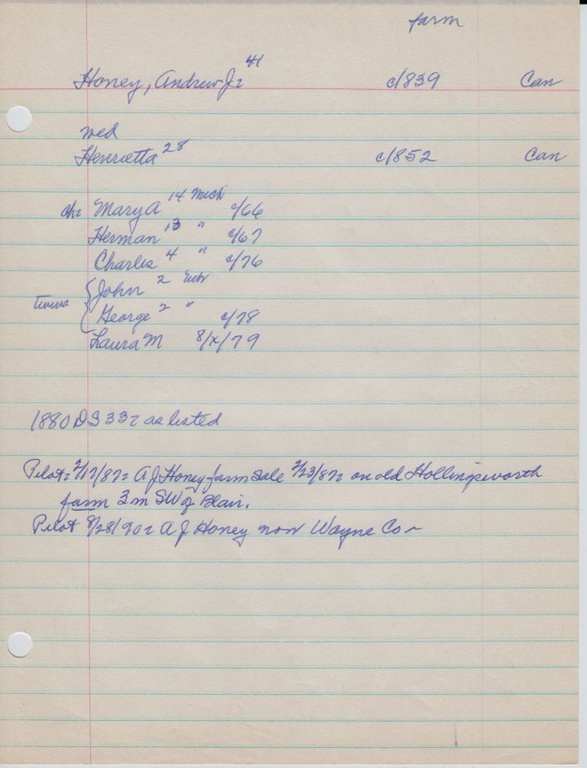 farm
Honey, Andrew Jr 41 c/839 Can
wed
Henrietta 28 c/852 Can
ch: Mary A 14 Mich c/66
Herman 13 " c/67
Charles 4 " c/76
John 2 Nebr
twins George 2 " c/78
Laura M 8/x/79
1880 DS 33: as listed
Pilot: 2/17/87: A J Honey farm sale 2/23/87: on old Hollingsworth
farm 3 m SW of Blair.
Pilot 8/28/90: A J Honey now Wayne Co